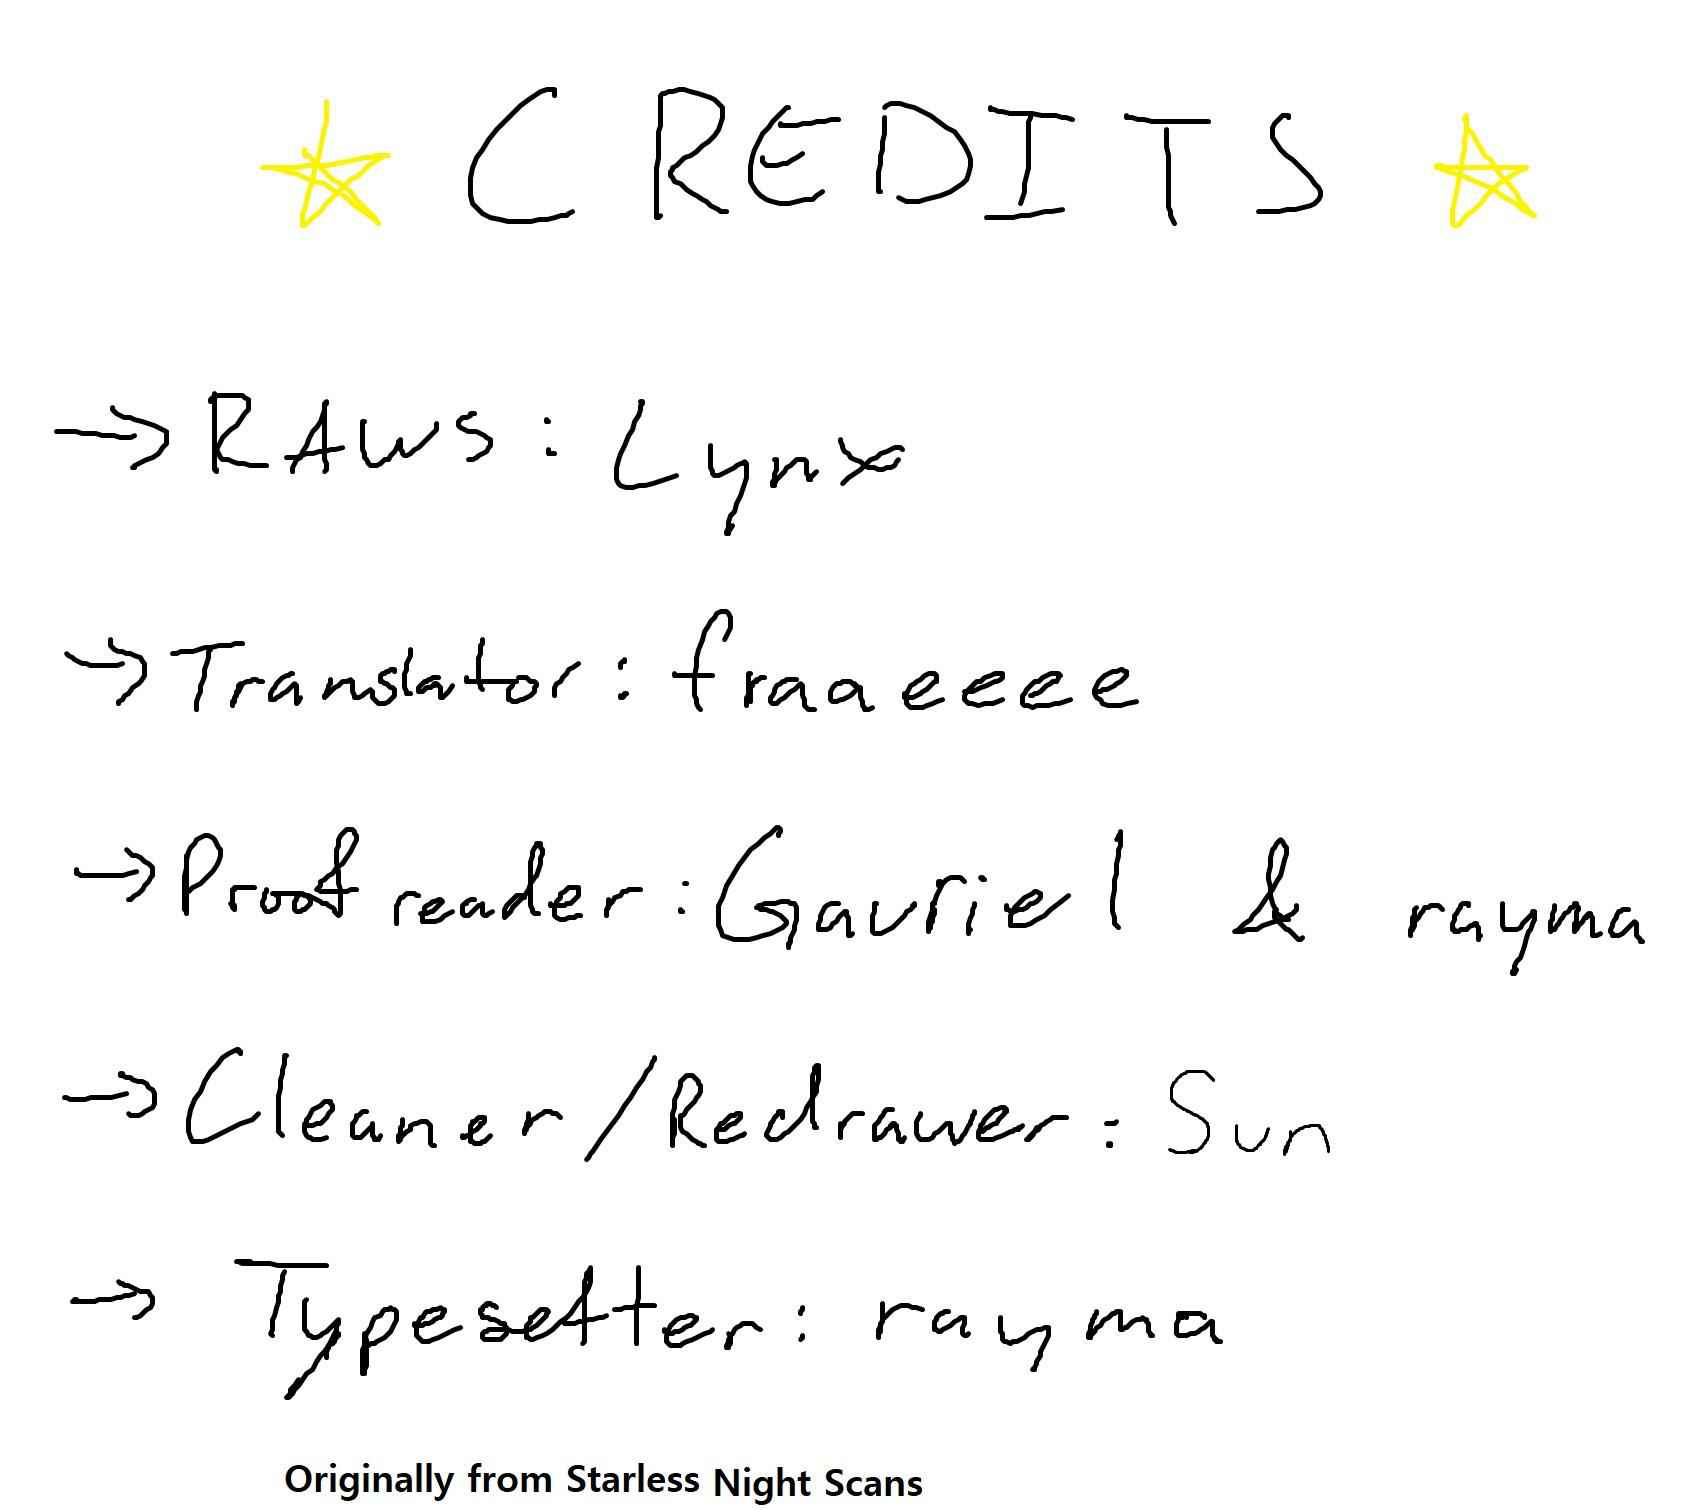 CREDITS
→ RAws: Lynx
→ Translator: fraaeeee
→ Proofreader: Gauriel & rayma
→ Cleaner/Redrawer: Sun
→ Typesetter: rayma
Originally from Starless Night Scans